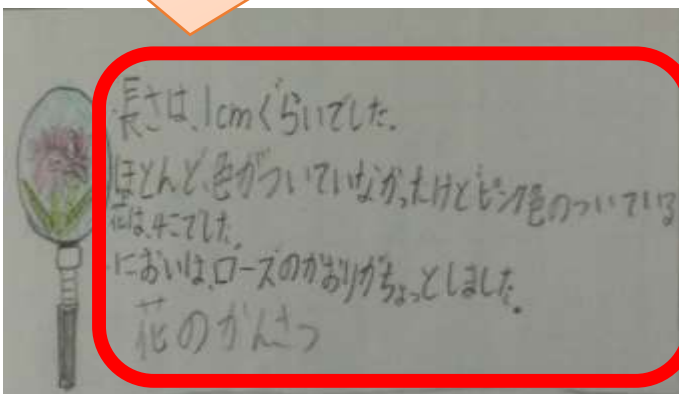 ・長さは、1cmぐらいでした。
・ほとんど、色がついていなかったけどピンク色のついている
花は、4こでした。
・においは、ローズのかおりがちょっとしました。
花のかんさつ